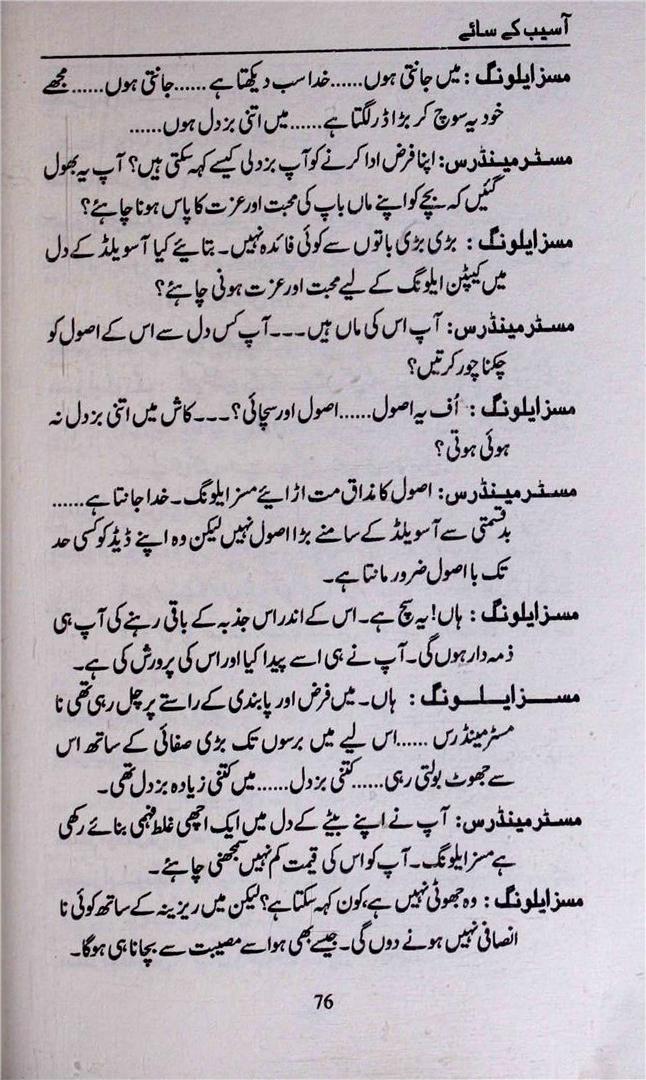 آسیب کے سائے
مسز ایلونگ : میں جانتی ہوں......خدا سب دیکھتا ہے......جانتی ہوں......مجھے
خود یہ سوچ کر بڑا ڈر لگتا ہے......میں اتنی بزدل ہوں......
مسٹر مینڈرس: اپنا فرض ادا کرنے کو آپ بزدلی کیسے کہہ سکتی ہیں؟ آپ یہ بھول
گئیں کہ بچے کو اپنے ماں باپ کی محبت اور عزت کا پاس ہونا چاہئے؟
مسز ایلونگ : بڑی بڑی باتوں سے کوئی فائدہ نہیں۔ بتائیے کیا آسویلڈ کے دل
میں کیپٹن ایلونگ کے لیے محبت اور عزت ہونی چاہئے؟
مسٹر مینڈرس: آپ اس کی ماں ہیں۔۔۔آپ کس دل سے اس کے اصول کو
چکنا چور کرتیں؟
مسز ایلونگ : اُف یہ اصول......اصول اور سچائی؟۔۔۔کاش میں اتنی بزدل نہ
ہوئی ہوتی؟
مسٹر مینڈرس: اصول کا مذاق مت اڑائیے مسز ایلونگ۔ خدا جانتا ہے......
بدقسمتی سے آسویلڈ کے سامنے بڑا اصول نہیں لیکن وہ اپنے ڈیڈ کو کسی حد
تک با اصول ضرور مانتا ہے۔
مسز ایلونگ : ہاں! یہ سچ ہے۔ اس کے اندر اس جذبہ کے باقی رہنے کی آپ ہی
ذمہ دار ہوں گی۔ آپ نے ہی اسے پیدا کیا اور اس کی پرورش کی ہے۔
مسز ایلونگ : ہاں۔ میں فرض اور پابندی کے راستے پر چل رہی تھی نا
مسٹر مینڈرس ......اس لیے میں برسوں تک بڑی صفائی کے ساتھ اس
سے جھوٹ بولتی رہی......کتنی بزدل......میں کتنی زیادہ بزدل تھی۔
مسٹر مینڈرس: آپ نے اپنے بیٹے کے دل میں ایک اچھی غلط فہمی بنائے رکھی
ہے مسز ایلونگ۔ آپ کو اس کی قیمت کم نہیں سمجھنی چاہئے۔
مسز ایلونگ : وہ جھوٹی نہیں ہے، کون کہہ سکتا ہے؟ لیکن میں ریزینہ کے ساتھ کوئی نا
انصافی نہیں ہونے دوں گی۔ جیسے بھی ہوا سے مصیبت سے بچانا ہی ہوگا۔
76